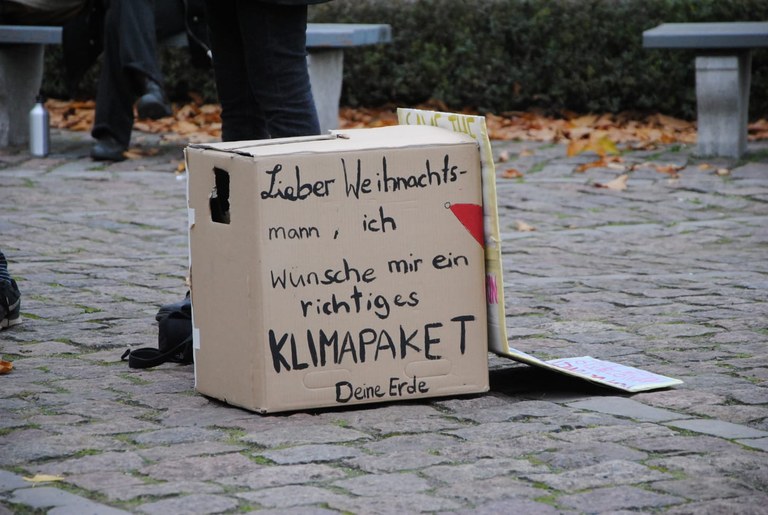 Lieber Weihnachts-
mann, ich
wünsche mir ein
richtiges
KLIMAPAKET
Deine Erde
SAVE THE